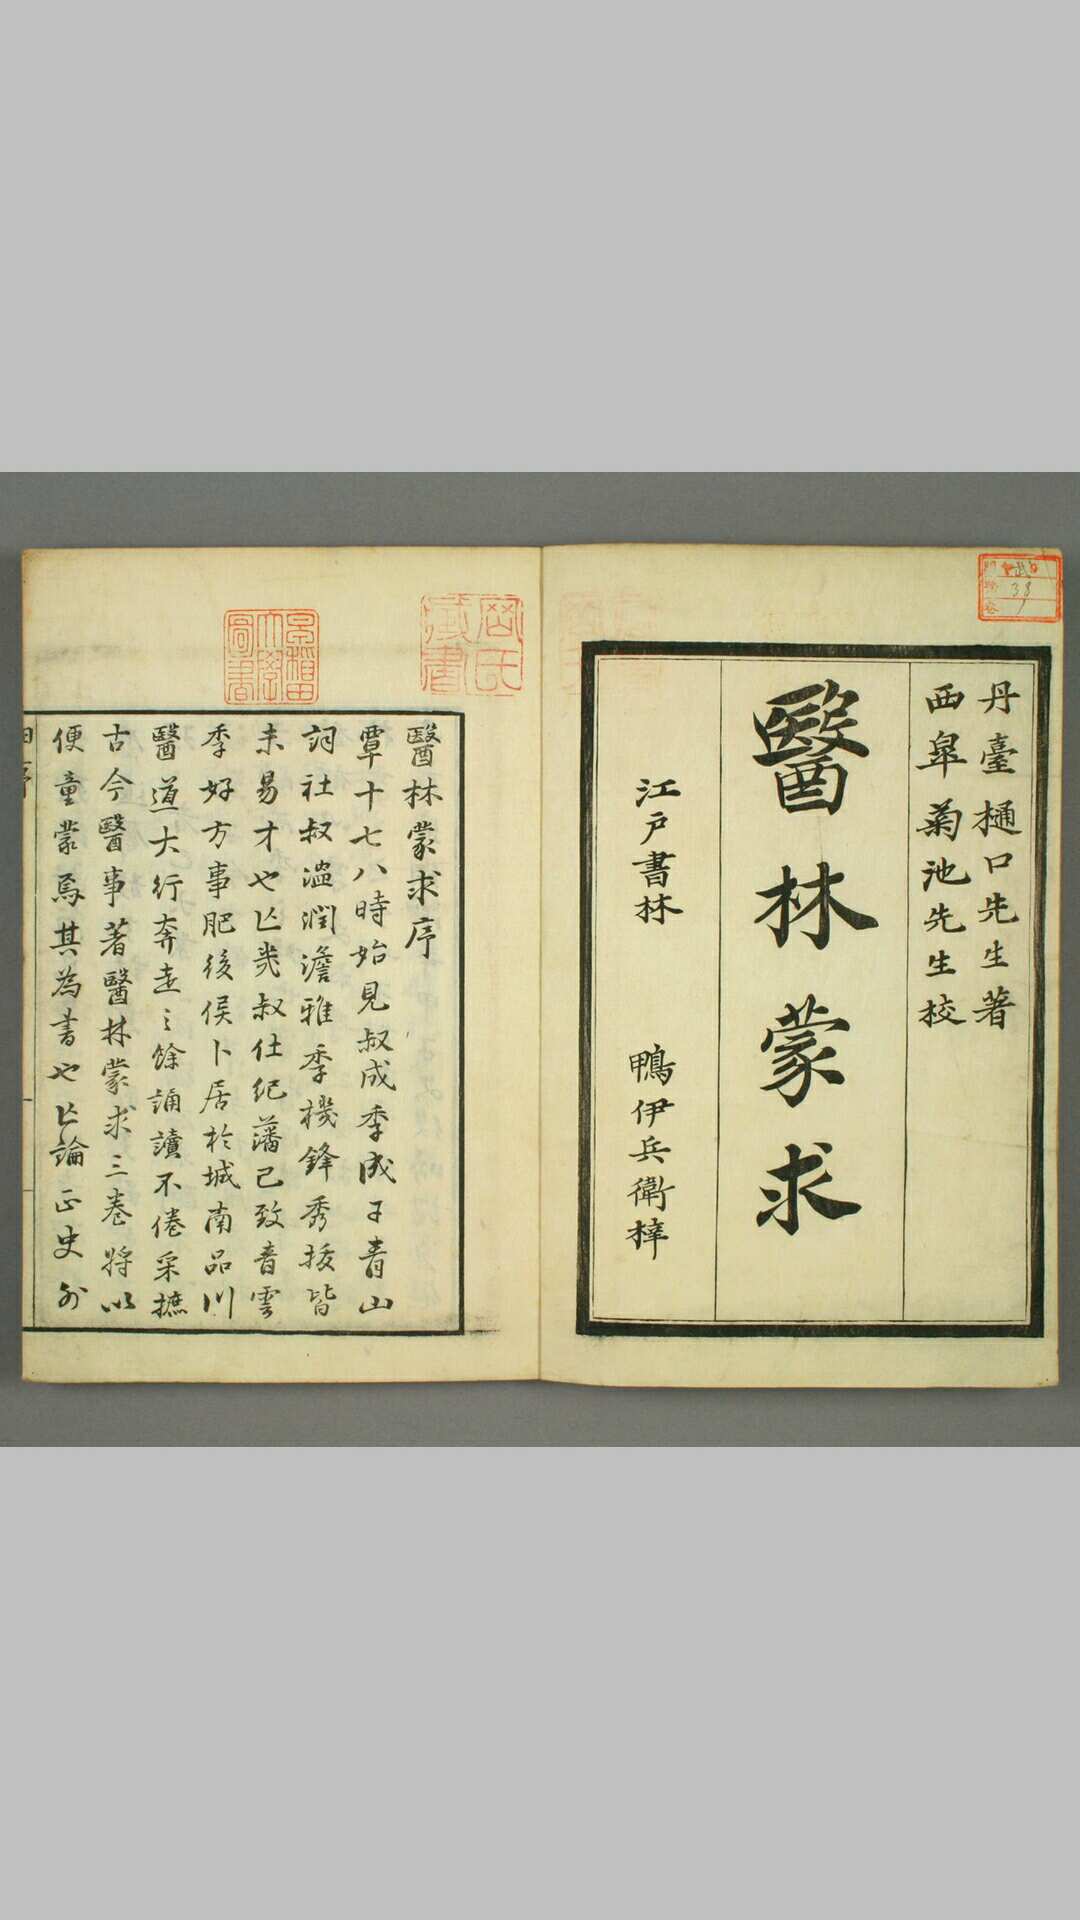 丹臺樋口先生著
西皐菊池先生校
醫林蒙求
江戸書林 鴨伊兵衛梓
醫林蒙求序
覃十七八時始見叔成季成于青山
詞社叔溫潤澹雅季機鋒秀拔皆
未易才也亡幾叔仕紀藩已致青雲
季好方事肥後侯卜居於城南品川
醫道大行奔走之餘誦讀不倦采摭
古今醫事著醫林蒙求三卷將以
便童蒙焉其為書也亡論正史外
岡氏藏書
早稲田大學圖書